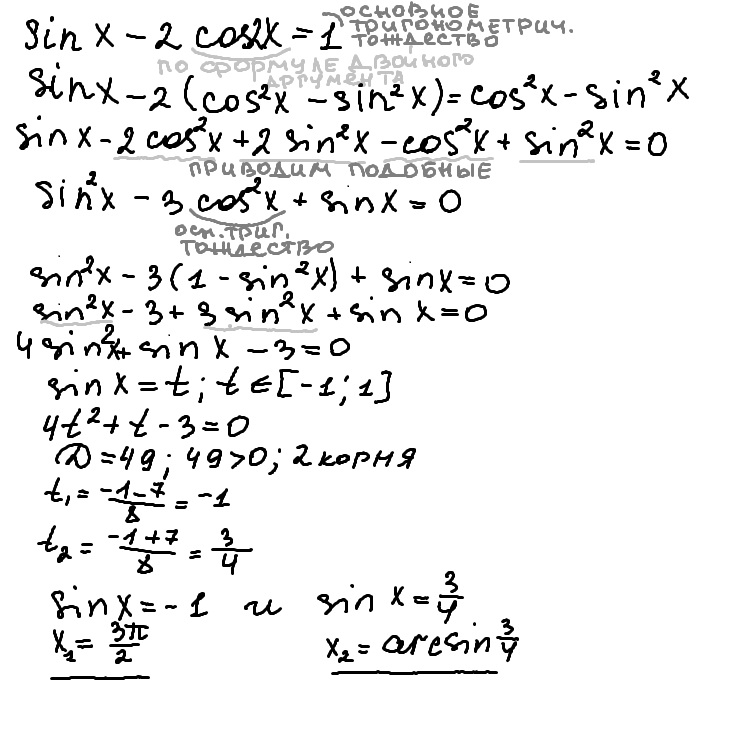 sin x - 2 cos2x = 1 основное тригонометрич. тождество
по формуле двойного аргумента
sin x - 2 (cos²x - sin²x) = cos²x - sin²x
sin x - 2 cos²x + 2 sin²x - cos²x + sin²x = 0
приводим подобные
sin²x - 3 cos²x + sin x = 0
осн. триг. тождество
sin²x - 3 (1 - sin²x) + sin x = 0
sin²x - 3 + 3 sin²x + sin x = 0
4 sin²x + sin x - 3 = 0
sin x = t; t ∈ [-1; 1]
4t² + t - 3 = 0
D = 49; 49 > 0; 2 корня
t₁ = (-1-7)/8 = -1
t₂ = (-1+7)/8 = 3/4
sin x = -1 и sin x = 3/4
x₁ = 3π/2 x₂ = arcsin 3/4